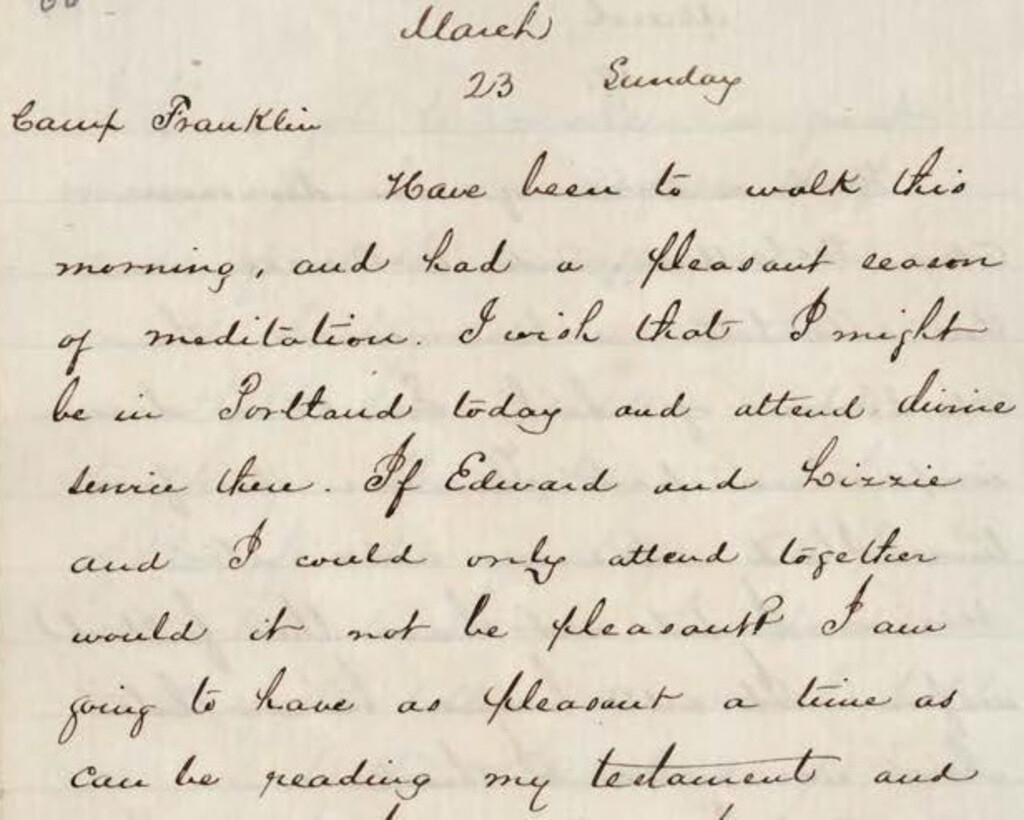 March
23 Sunday
Camp Franklin
Have been to walk this
morning, and had a pleasant season
of meditation. I wish that I might
be in Portland today and attend divine
service there. If Edward and Lizzie
and I could only attend together
would it not be pleasant? I am
going to have as pleasant a time as
can be reading my testament and